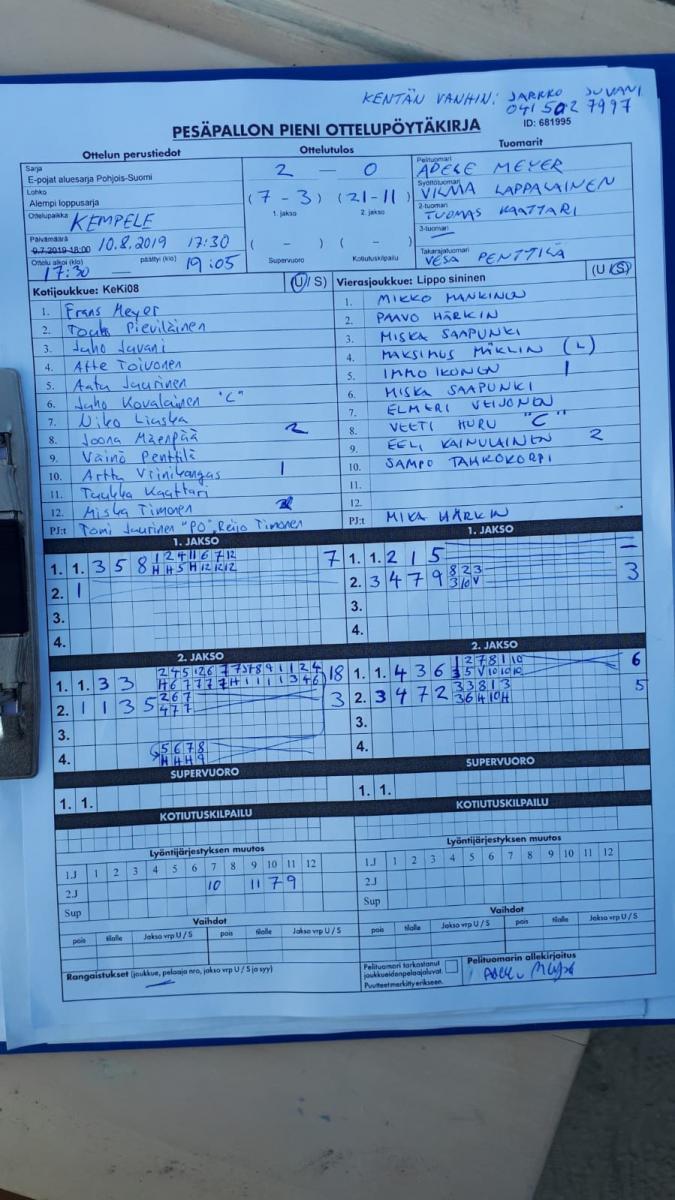 KENTÄN VANHIN: JARKKO JUVANI
041 502 7997
ID: 681995
PESÄPALLON PIENI OTTELUPÖYTÄKIRJA
Ottelun perustiedot
Sarja
E-pojat aluesarja Pohjois-Suomi
Lohko
Alempi loppusarja
Ottelupaikka KEMPELE
Päivämäärä
9.7.2019 18:00 10.8.2019 17:30
Ottelu alkoi (klo) 17:30 päättyi (klo) 19:05
Ottelutulos
2 – 0
(7 – 3) (21 – 11)
1. jakso 2. jakso
( – ) ( – )
Supervuoro Kotiutuskilpailu
Tuomarit
Pelituomari
ADELE MEYER
Syöttötuomari
VILMA LAPPALAINEN
2-tuomari
TUOMAS KAATTARI
3-tuomari
Takarajatuomari
VESA PENTTILÄ
Kotijoukkue: KeKi08 (U / S)
1. Frans Meyer
2. Touko Pieviläinen
3. Juho Juvani
4. Atte Toivonen
5. Aatu Juurinen
6. Juho Kovalainen "C"
7. Niko Liaska
8. Joona Mäenpää 2
9. Väinö Penttilä
10. Arttu Vrinikangas 1
11. Tuukka Kaattari
12. Miska Timonen
PJ:t Tomi Juurinen "PO", Reijo Timonen
Vierasjoukkue: Lippo sininen (U / S)
1. MIKKO HANKINEN
2. PAAVO HÄRKIN
3. MISKA SAAPUNKI
4. MAKSIMUS MÄKLIN (L)
5. IMMO IKONEN 1
6. MISKA SAAPUNKI
7. ELMERI VEIJONEN
8. VEETI HURU "C"
9. EELI KAINULAINEN 2
10. SAMPO TAHKOKORPI
11.
12.
PJ:t MIKA HÄRKIN
1. JAKSO
1. 1. 3 5 8 1 2 4 11 6 7 12 7
H H 5 H 12 12 12
2. 1
3.
4.
1. JAKSO
1. 1. 2 1 5 –
2. 3 4 7 9 8 2 3 3
3 10 V
3.
4.
2. JAKSO
1. 1. 3 3 18
2. 1 1 3 5 2 6 7 3
4 7 7
3.
4. 5 6 7 8
H H H 9
2. JAKSO
1. 1. 4 3 6 1 2 7 8 1 10 6
3 5 V 10 10 10
2. 3 4 7 2 3 3 8 1 3 5
3 6 H 10 H
3.
4.
SUPERVUORO
1. 1.
SUPERVUORO
1. 1.
KOTIUTUSKILPAILU
KOTIUTUSKILPAILU
Lyöntijärjestyksen muutos
1.J 1 2 3 4 5 6 7 8 9 10 11 12
2.J 10 11 7 9
Sup
Lyöntijärjestyksen muutos
1.J 1 2 3 4 5 6 7 8 9 10 11 12
2.J
Sup
Vaihdot
pois tilalle Jakso vrp U / S pois tilalle Jakso vrp U / S
Vaihdot
pois tilalle Jakso vrp U / S pois tilalle Jakso vrp U / S
Rangaistukset (joukkue, pelaaja nro, jakso vrp U / S ja syy)
Pelituomari tarkastanut
joukkueidenpelaajaluvat.
Puutteet merkitty erikseen.
Pelituomarin allekirjoitus